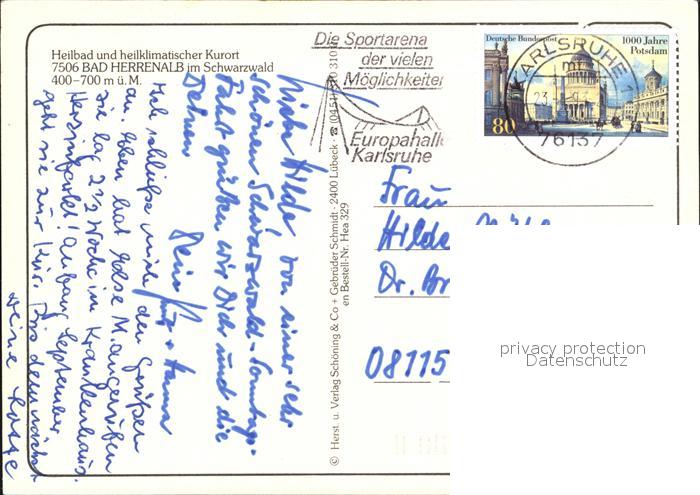 Heilbad und heilklimatischer Kurort
7506 BAD HERRENALB im Schwarzwald
400–700 m ü. M.
Die Sportarena
der vielen
Möglichkeiten
Europahalle
Karlsruhe
Deutsche Bundespost
1000 Jahre
Potsdam
80
KARLSRUHE 1
76137
Liebe Hilde, von einer sehr
schönen Schwarzwald-Sonntags-
Fahrt grüßen wir Dich und die
Deinen
Dein + Hanna
Ich schließe mich den Grüßen
an. Eben hat Else M. angerufen
sie lag 2 1/2 Woche im Krankenhaus.
Anfang September
geht sie zur Kur. Bis demnächst
Deine
© Herst. u. Verlag Schöning & Co + Gebrüder Schmidt · 2400 Lübeck · ☎ (0451)
en Bestell-Nr. Hea 329
Frau
Hilde
Dr.
08115
privacy protection
Datenschutz